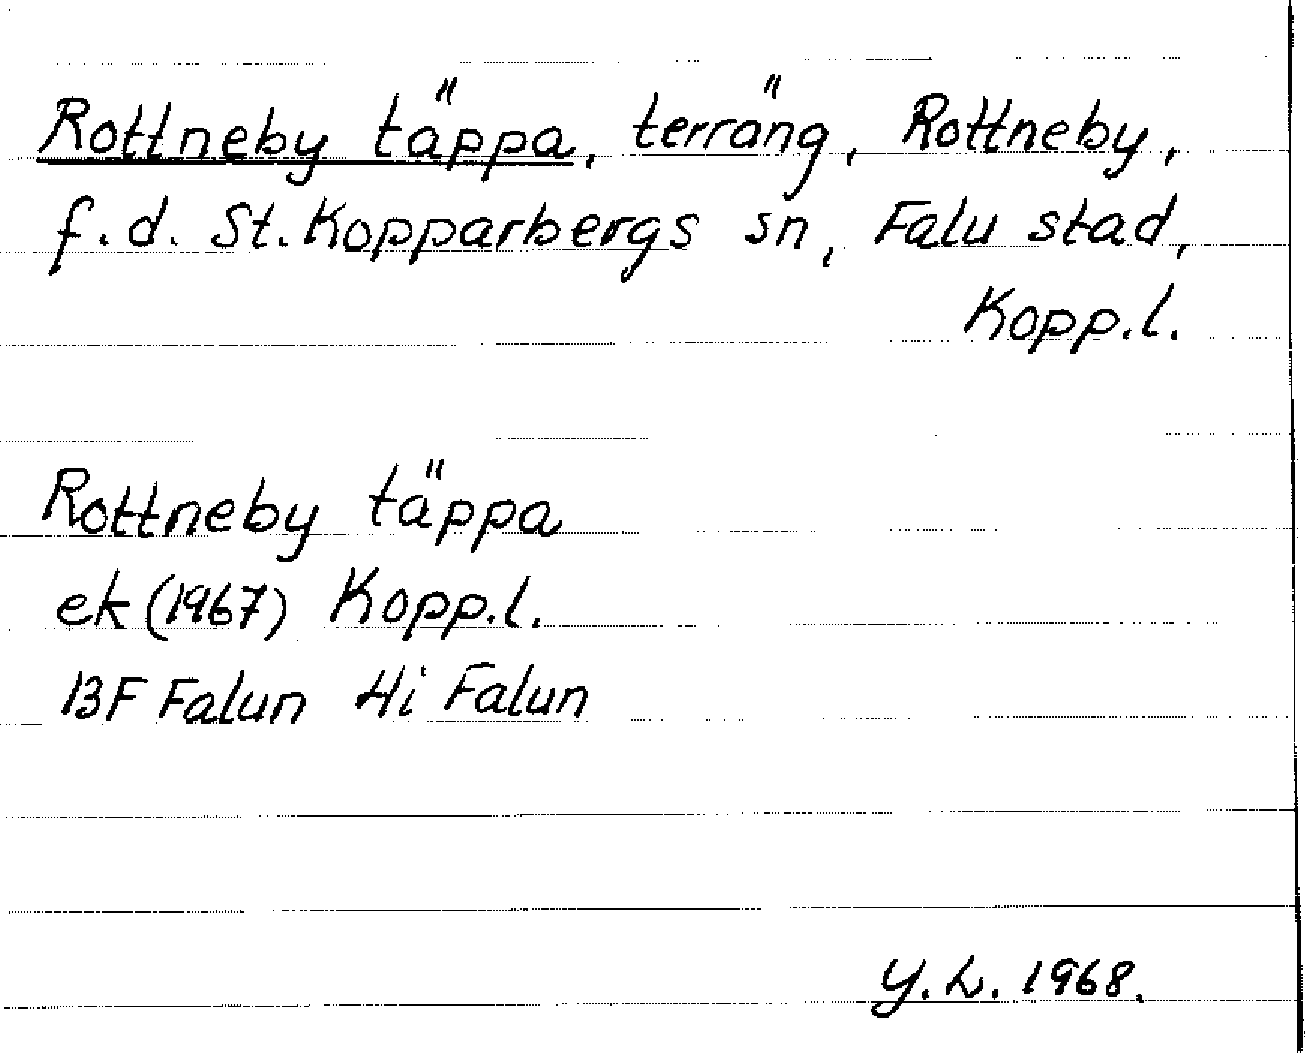 Rottneby täppa, terräng, Rottneby,
f.d. St. Kopparbergs sn, Falu stad,
Kopp.l.
Rottneby täppa
ek (1967) Kopp.l.
BF Falun Hi Falun
Y.L. 1968.